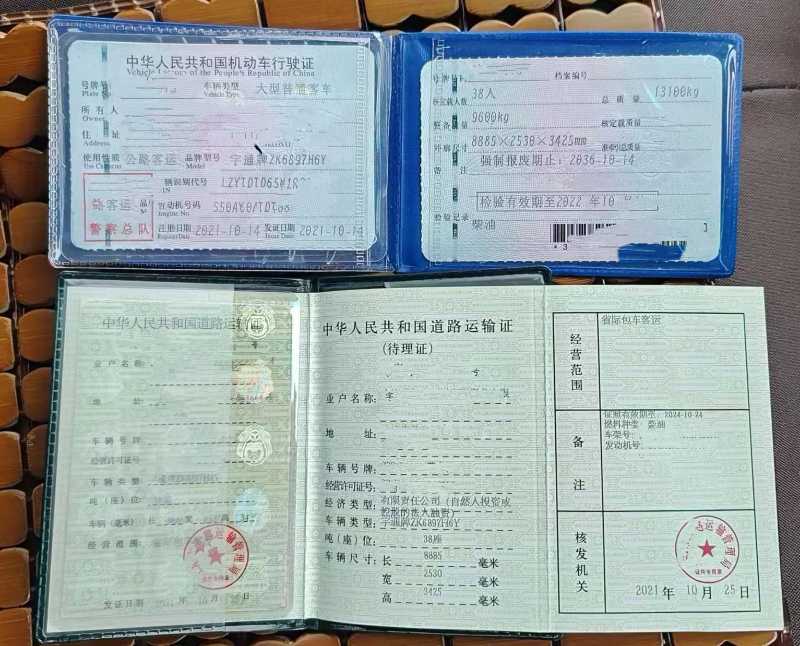 中华人民共和国机动车行驶证
Vehicle License of the People's Republic of China
号牌号码
Plate No.
车辆类型 大型普通客车
Vehicle Type
所有人
Owner
住 址
Address
使用性质 公路客运 品牌型号 宇通牌ZK6897H6Y
Use Character Model
发动机号码
Engine No.
警察总队
注册日期 2021-10-14 发证日期 2021-10-14
Register Date Issue Date
号牌号码
档案编号
核定载人数 38人 总质量 13100kg
整备质量 9600kg 核定载质量
外廓尺寸 8885×2530×3425mm 准牵引总质量
备 注 强制报废期止:2036-10-14
检验有效期至2022年10
检验记录
柴油
中华人民共和国道路运输证
业户名称:
地 址:
车辆号牌:
经营许可证号
车辆类型:
吨(座)位:
车辆(毫米) 长 宽 高
经营范围:
发证日期 2021年10月
中华人民共和国道路运输证
(待理证)
业户名称:
地 址:
车辆号牌:
经营许可证号:
经济类型: 有限责任公司(自然人投资或
控股的法人融资)
车辆类型: 宇通牌ZK6897H6Y
吨(座)位: 38座
车辆尺寸: 长 8885 毫米
宽 2530 毫米
高 3425 毫米
经营范围
省际包车客运
备注
证照有效期至:2024-10-24
燃料种类:柴油
车架号:
发动机号:
核发机关
运输管理局
证件专用章
2021年10月25日